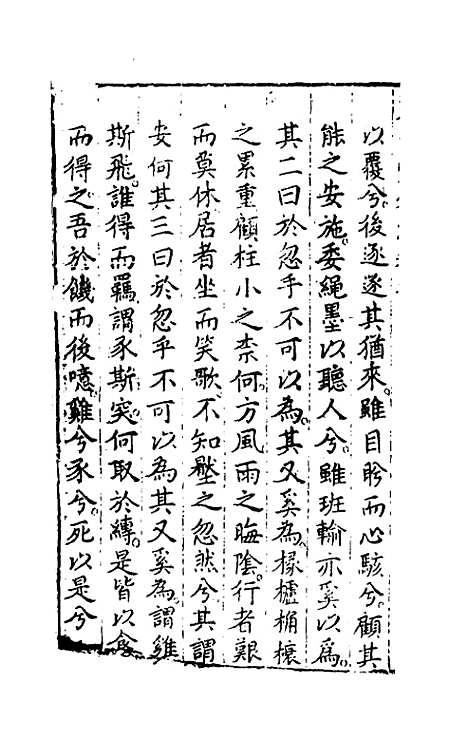 以覆兮後逐逐其猶來雖目盻而心駭兮顧其
能之安施委繩墨以聽人兮雖班輸亦奚以為
其二曰於忽乎不可以為其又奚為椽櫨桷榱
之累重顧柱小之柰何方風雨之晦陰行者艱
而莫休居者坐而笑歌不知壓之忽然兮其謂
安何其三曰於忽乎不可以為其又奚為謂雞
斯飛誰得而羈謂豕斯突何取於縛是皆以食
而得之吾於饑而後噫雞兮豕兮死以是兮